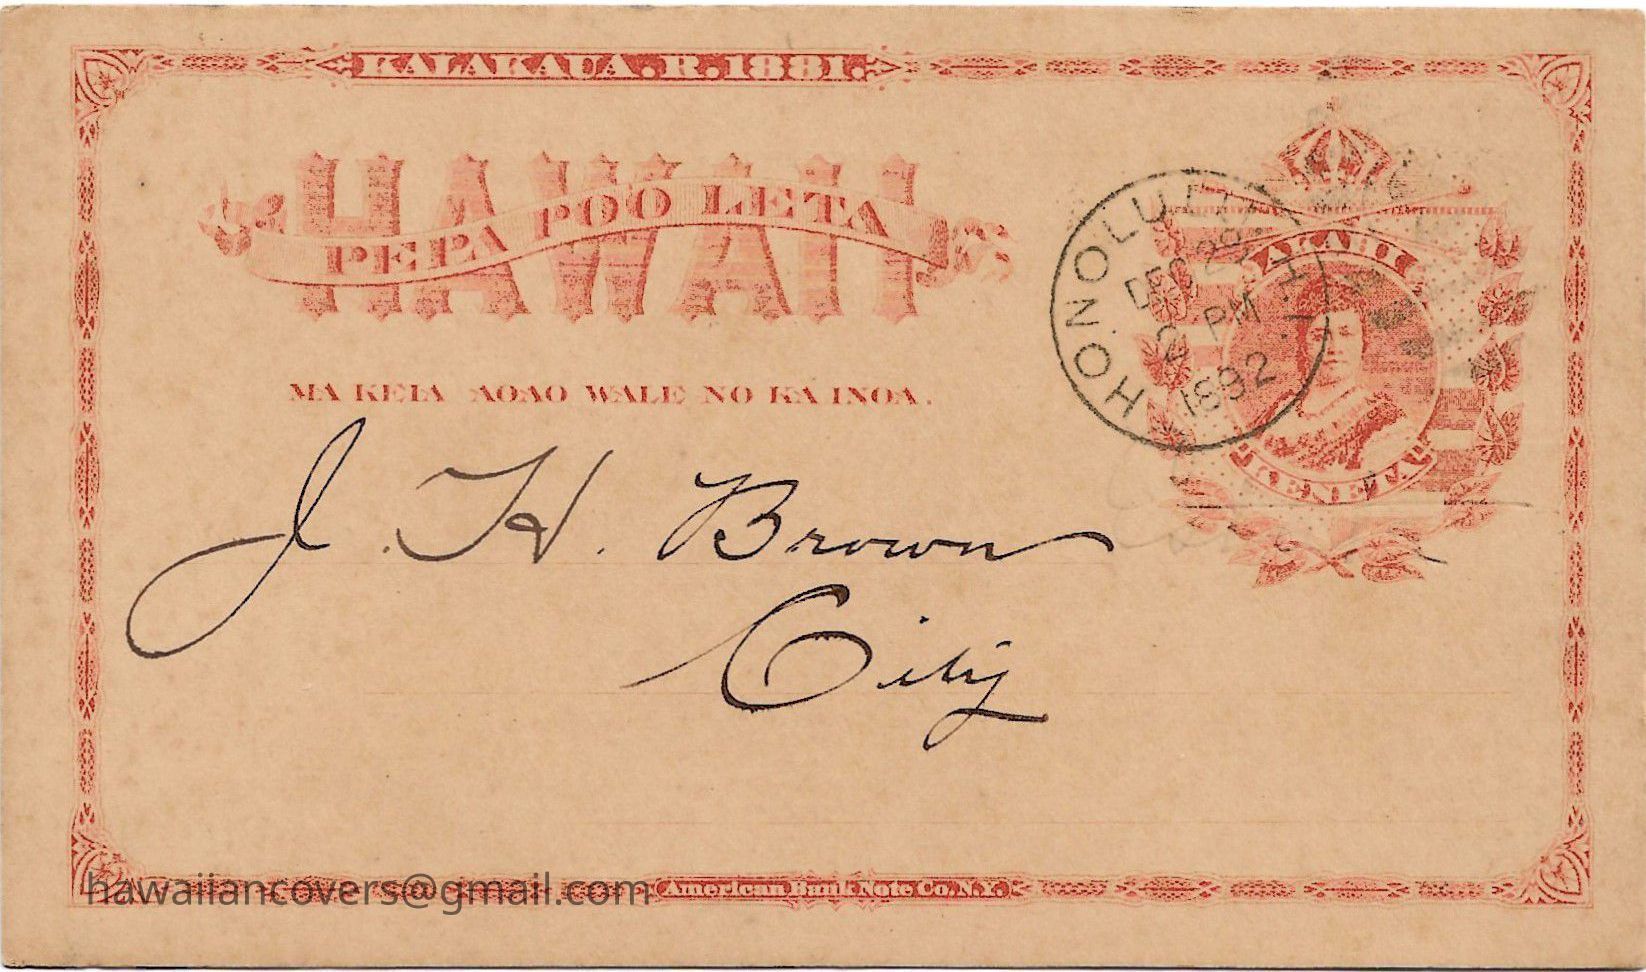 KALAKAUA. R. 1881.
HAWAII
PEPA POO LETA
HONOLULU H.I.
DEC 29
2 PM
1892
AKAHI
KENETA
MA KEIA AOAO WALE NO KA INOA.
J. H. Brown
City
American Bank Note Co. N.Y.
hawaiiancovers@gmail.com